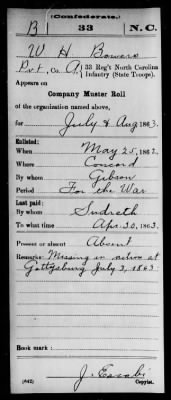 (Confederate.)
B 33 N.C.
W H Bowers
Pvt, Co. A, 33 Reg't North Carolina
Infantry (State Troops).
Appears on
Company Muster Roll
of the organization named above,
for July & Aug 1863.
Enlisted:
When May 25, 1862.
Where Concord
By whom Gibson
Period For the War
Last paid:
By whom Sudreth
To what time Apr 30, 1863.
Present or absent Absent
Remarks: Missing in action at
Gettysburg July 3, 1863
Book mark:
(642) J.
Copyist.